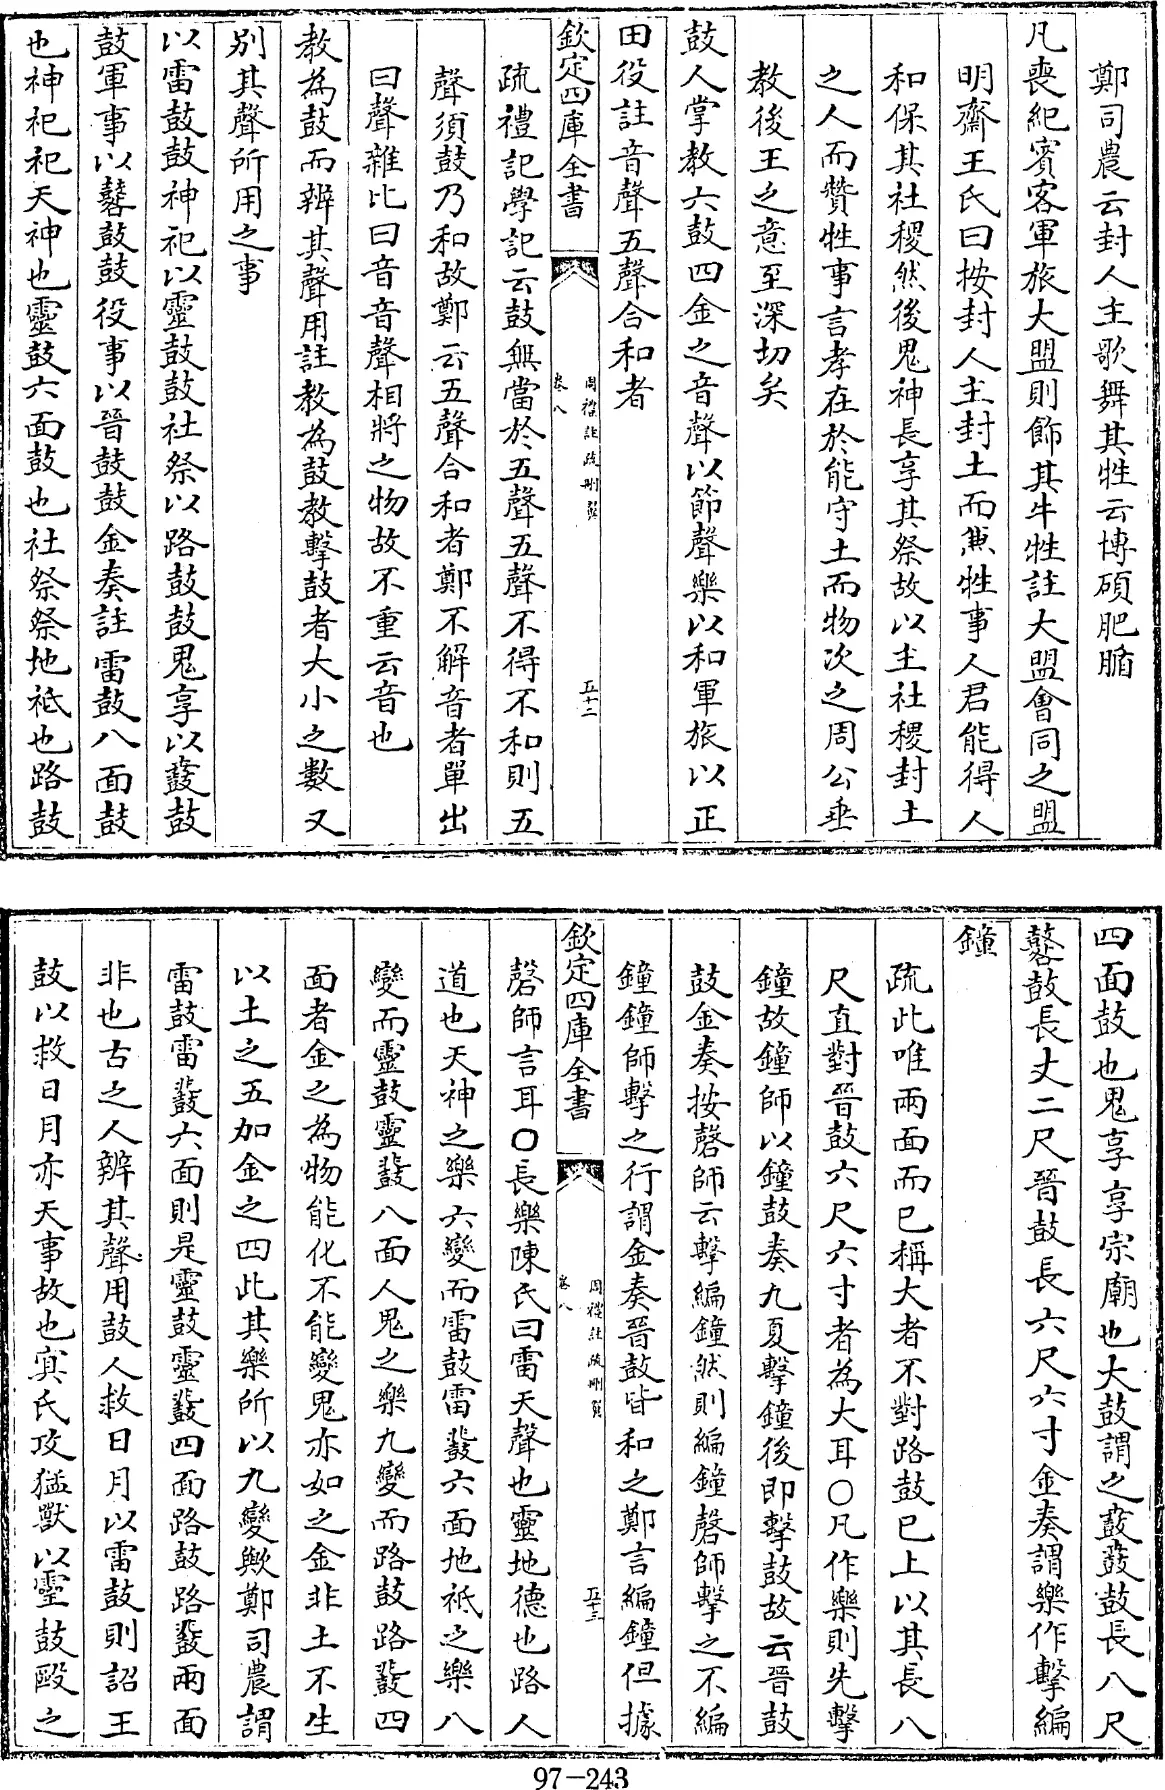 鄭司農云封人主歌舞其牲云博碩肥腯
凡喪紀賓客軍旅大盟則飾其牛牲註大盟會同之盟
明齋王氏曰按封人主封土而兼牲事人君能得人
和保其社稷然後鬼神長享其祭故以主社稷封土
之人而贊牲事言孝在於能守土而物次之周公垂
教後王之意至深切矣
鼓人掌教六鼓四金之音聲以節聲樂以和軍旅以正
田役註音聲五聲合和者
欽定四庫全書
周禮註疏刪翼
卷八
五十二
疏禮記學記云鼓無當於五聲五聲不得不和則五
聲須鼓乃和故鄭云五聲合和者鄭不解音者單出
曰聲雜比曰音音聲相將之物故不重云音也
教為鼓而辨其聲用註教為鼓教擊鼓者大小之數又
別其聲所用之事
以雷鼓鼓神祀以靈鼓鼓社祭以路鼓鼓鬼享以鼖鼓
鼓軍事以鼛鼓鼓役事以晉鼓鼓金奏註雷鼓八面鼓
也神祀祀天神也靈鼓六面鼓也社祭祭地祇也路鼓
四面鼓也鬼享享宗廟也大鼓謂之鼖鼖鼓長八尺
鼛鼓長丈二尺晉鼓長六尺六寸金奏謂樂作擊編
鐘
疏此唯兩面而已稱大者不對路鼓已上以其長八
尺直對晉鼓六尺六寸者為大耳○凡作樂則先擊
鐘故鐘師以鐘鼓奏九夏擊鐘後即擊鼓故云晉鼓
鼓金奏按磬師云擊編鐘然則編鐘磬師擊之不編
鐘鐘師擊之行謂金奏晉鼓皆和之鄭言編鐘但據
欽定四庫全書
周禮註疏刪翼
卷八
五十三
磬師言耳○長樂陳氏曰雷天聲也靈地德也路人
道也天神之樂六變而雷鼓雷鼗六面地祇之樂八
變而靈鼓靈鼗八面人鬼之樂九變而路鼓路鼗四
面者金之為物能化不能變鬼亦如之金非土不生
以土之五加金之四此其樂所以九變歟鄭司農謂
雷鼓雷鼗六面則是靈鼓靈鼗四面路鼓路鼗兩面
非也古之人辨其聲用鼓人救日月以雷鼓則詔王
鼓以救日月亦天事故也冥氏攻猛獸以靈鼓毆之
97-243